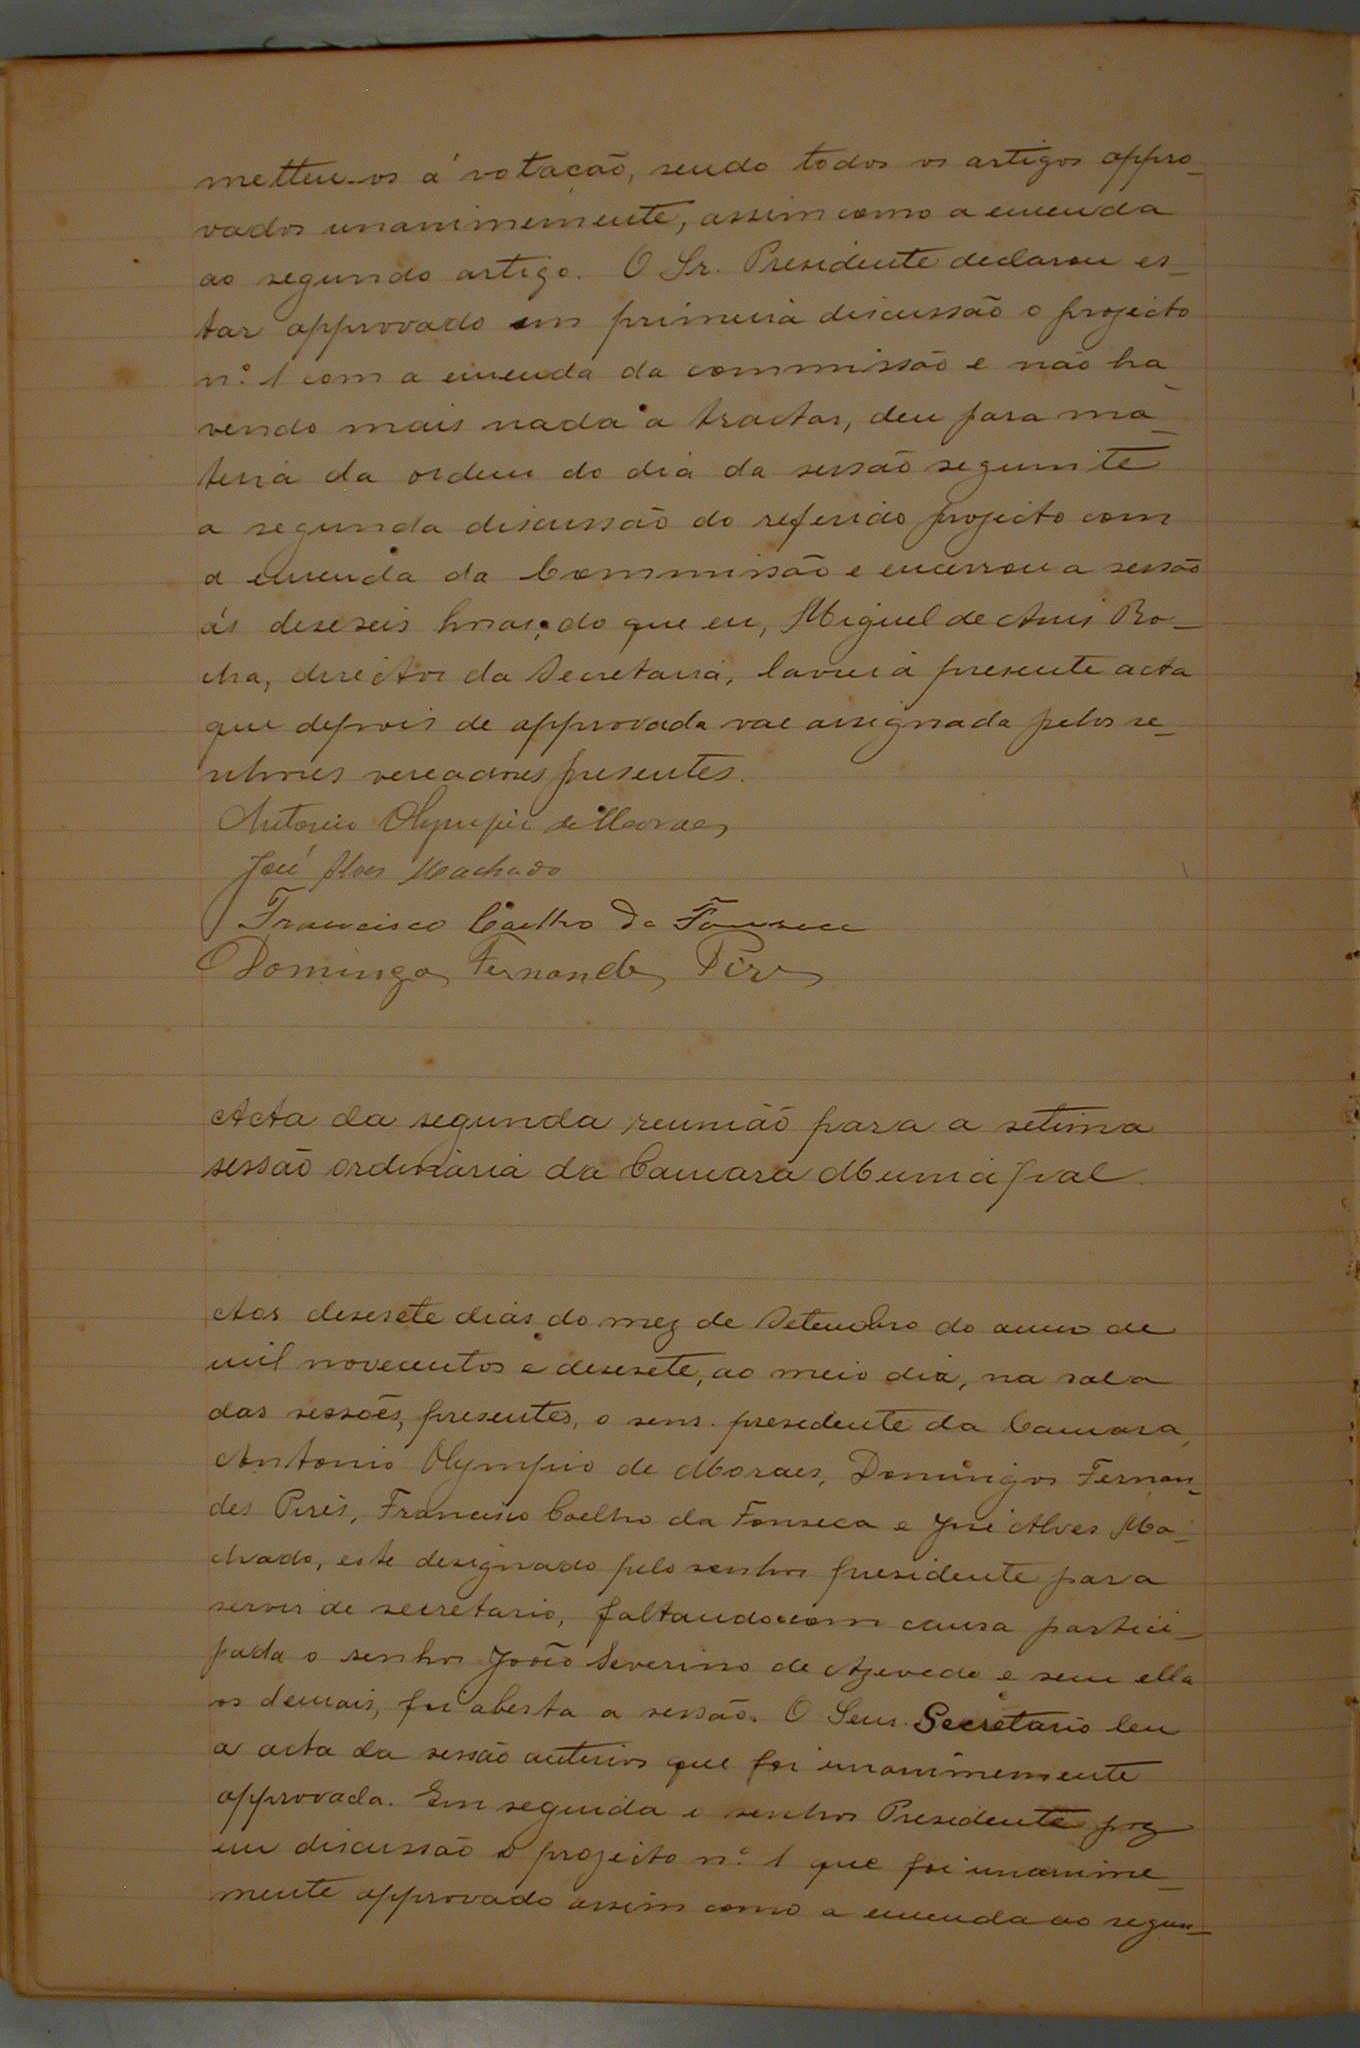 metteu-os á votação, sendo todos os artigos appro-
vados unanimemente, assim como a emenda
ao segundo artigo. O Sr. Presidente declarou es-
tar approvado em primeira discussão o projecto
nº 1 com a emenda da commissão e não ha-
vendo mais nada a tractar, deu para ma-
teria da ordem do dia da sessão seguinte
a segunda discussão do referido projecto com
a emenda da Commissão e encerrou a sessão
ás deseseis horas, do que eu, Miguel de Assis Ro-
cha, director da Secretaria, lavrei a presente acta
que depois de approvada vae assignada pelos se-
nhores vereadores presentes.
Antonio Olympio de Moraes
José Alves Machado
Francisco Coelho da Fonseca
Domingos Fernandes Pires
Acta da segunda reunião para a setima
sessão ordinaria da Camara Municipal.
Aos desesete dias do mez de Setembro do anno de
mil novecentos e desesete, ao meio dia, na sala
das sessões, presentes, o senr. presidente da Camara,
Antonio Olympio de Moraes, Domingos Fernan-
des Pires, Francisco Coelho da Fonseca e José Alves Ma-
chado, este designado pelo senhor presidente para
servir de secretario, faltando com causa partici-
pada o senhor João Severino de Azevedo e sem ella
os demais, foi aberta a sessão. O Senr. Secretario leu
a acta da sessão anterior que foi unanimemente
approvada. Em seguida o senhor Presidente poz
em discussão o projecto nº 1 que foi unanime-
mente approvado assim como a emenda ao segun-